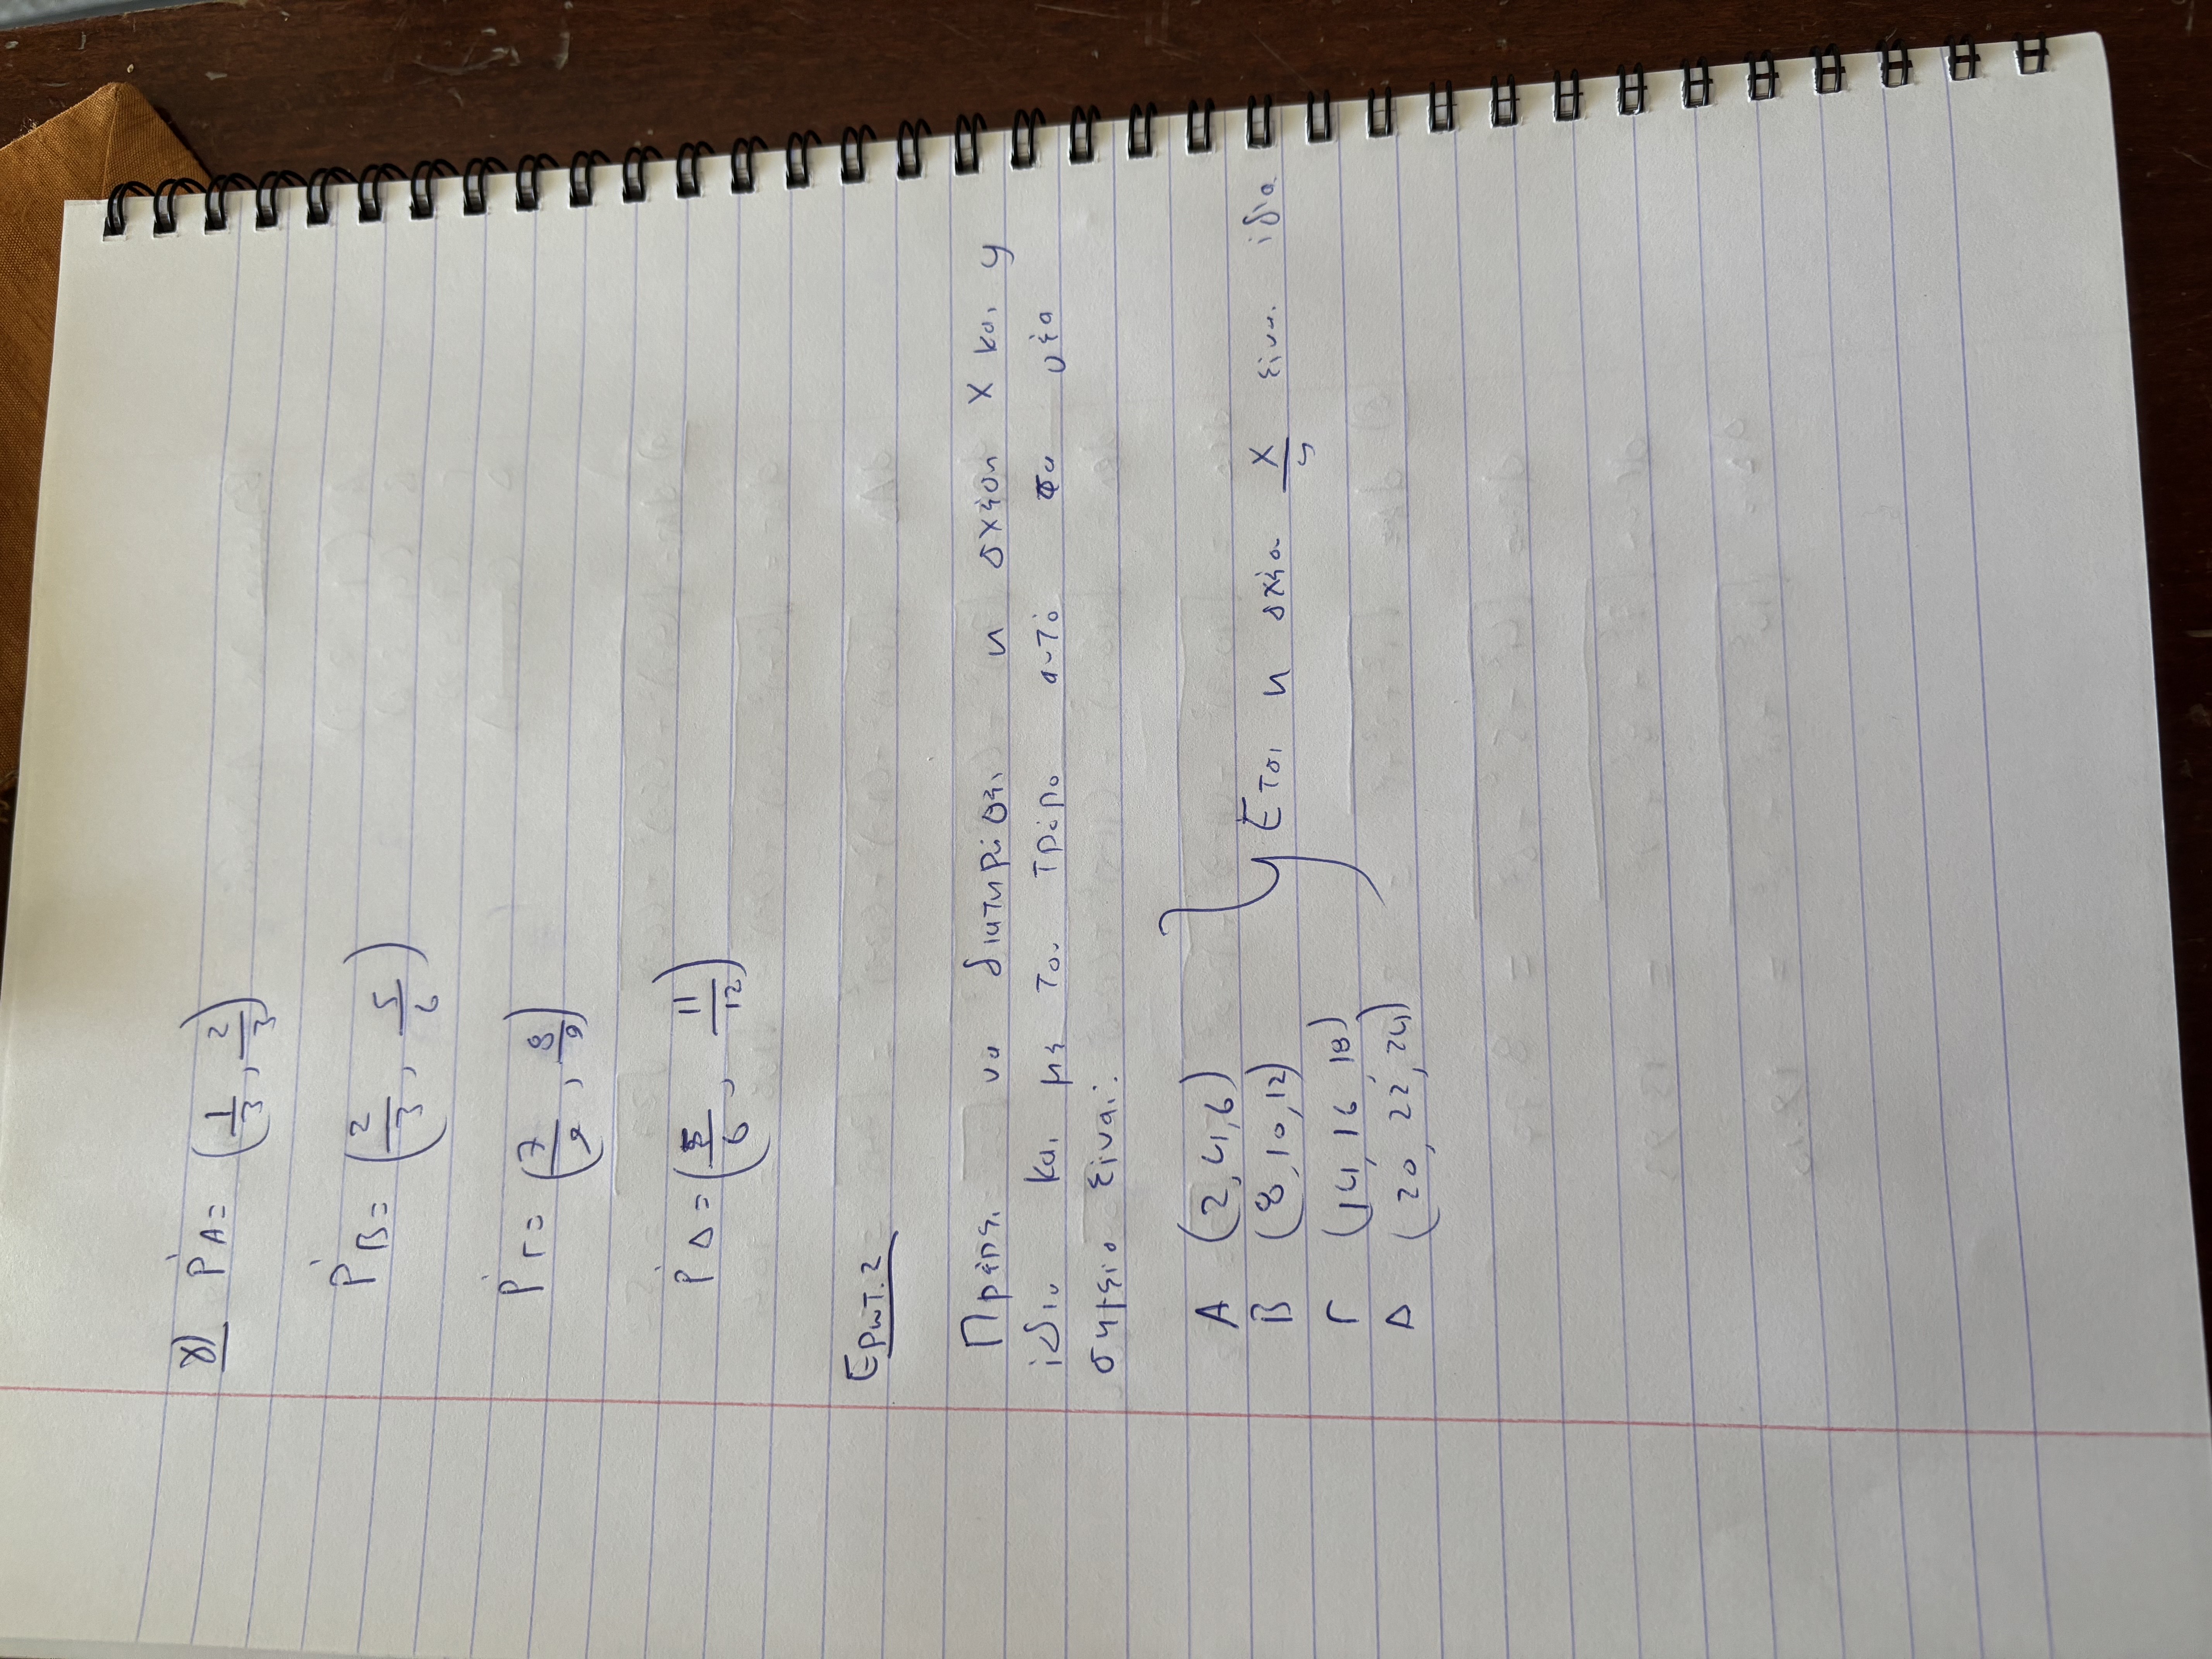 γ) P'A = (1/3, 2/3)
P'B = (2/3, 5/6)
P'Γ = (7/9, 8/9)
P'Δ = (5/6, 11/12)
Ερωτ. 2
Πρέπει να διατηρηθεί η σχέση X και y
ίδια και με τον τρόπο αυτό τα νέα
σημεία είναι:
A (2, 4, 6)
B (8, 10, 12)
Γ (14, 16, 18)
Δ (20, 22, 24)
Έτσι η σχέση X/y είναι ίδια